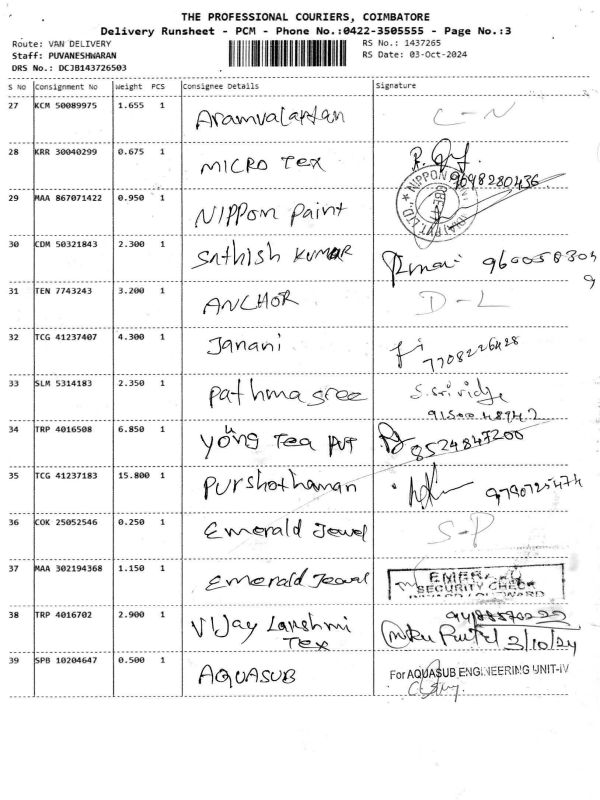 THE PROFESSIONAL COURIERS, COIMBATORE
Delivery Runsheet - PCM - Phone No.:0422-3505555 - Page No.:3
Route: VAN DELIVERY
RS No.: 1437265
Staff: PUVANESHWARAN
RS Date: 03-Oct-2024
DRS No.: DCJB143726503
S No Consignment No Weight PCS Consignee Details Signature
27 KCM 50089975 1.655 1 C-N
28 KRR 30040299 0.675 1 MICRO Tex
9098280436
29 MAA 867071422 0.950 1 NIPPON Paint
NIPPON
30 CDM 50321843 2.300 1 Sathish KUMAR
31 TEN 7743243 3.200 1 ANCHOR D-L
32 TCG 41237407 4.300 1 Janani
7708226428
33 SLM 5314183 2.350 1 Pathma sree
34 TRP 4016508 6.850 1 Tea PVT 8524847200
35 TCG 41237183 15.800 1 Purshothaman 9790725474
36 COK 25052546 0.250 1 Emerald Jewel S-P
37 MAA 302194368 1.150 1 Emerald Jewel
SECURITY CHECK
38 TRP 4016702 2.900 1 Vijay Lakshmi
Tex 3/10/24
39 SPB 10204647 0.500 1 AQUASUB For AQUASUB ENGINEERING UNIT-IV